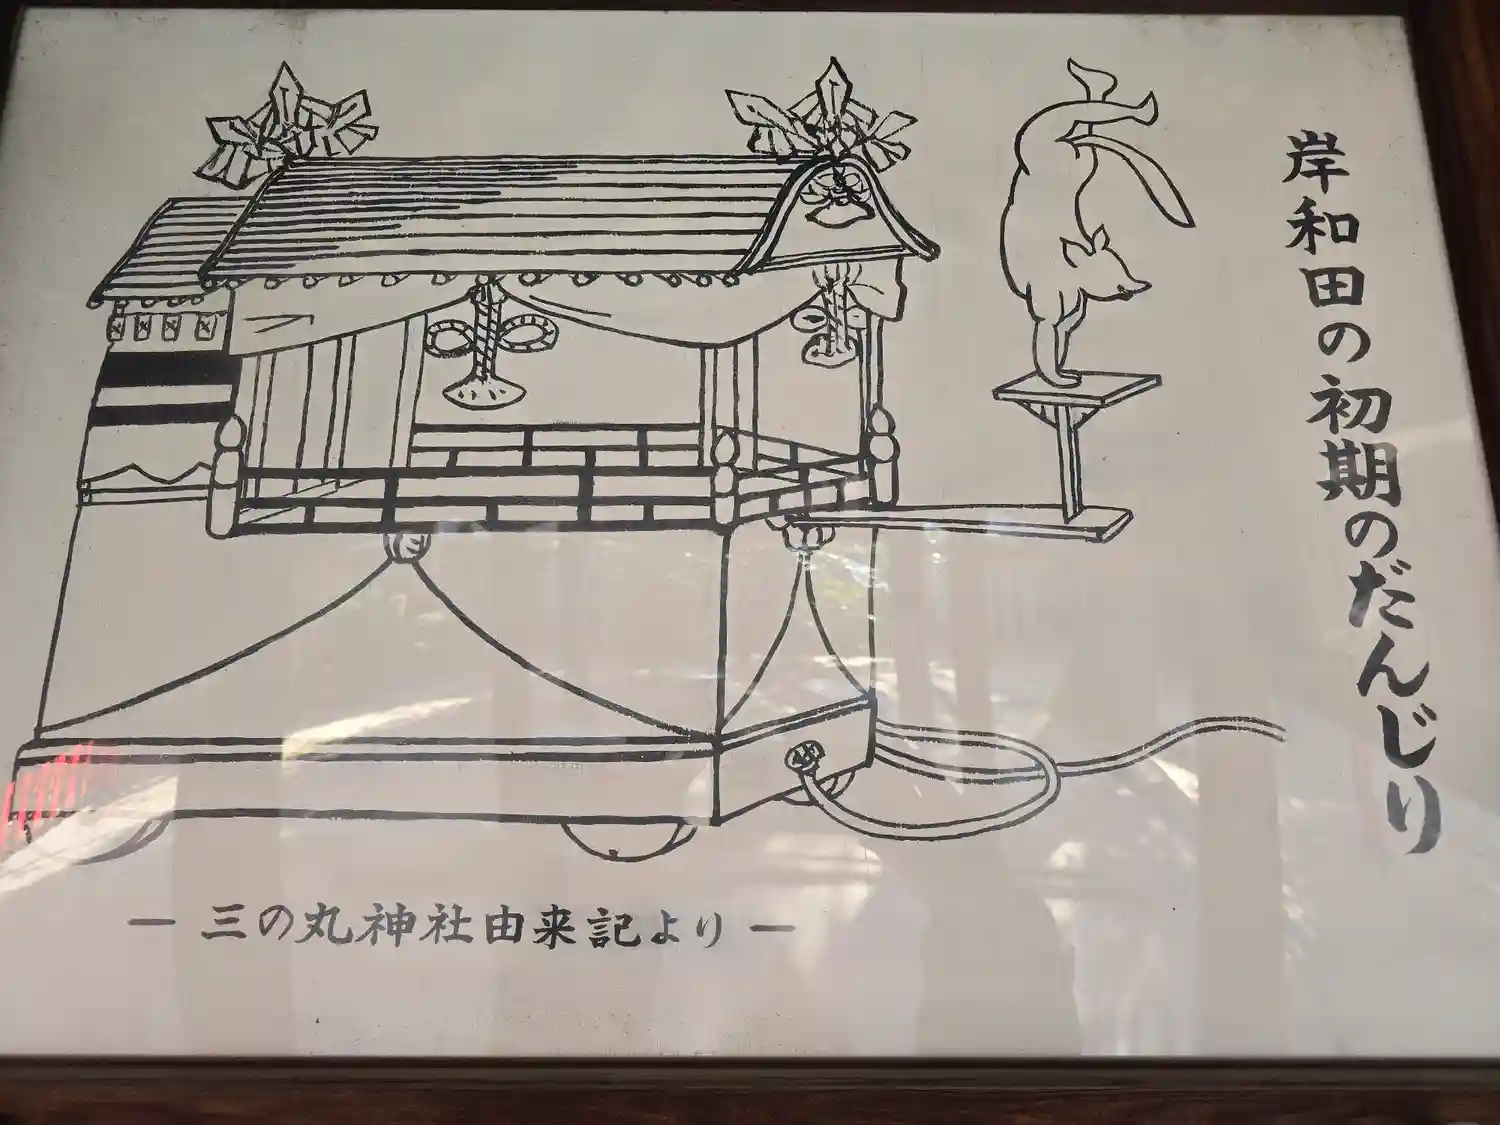 岸和田の初期のだんじり
— 三の丸神社由来記より —